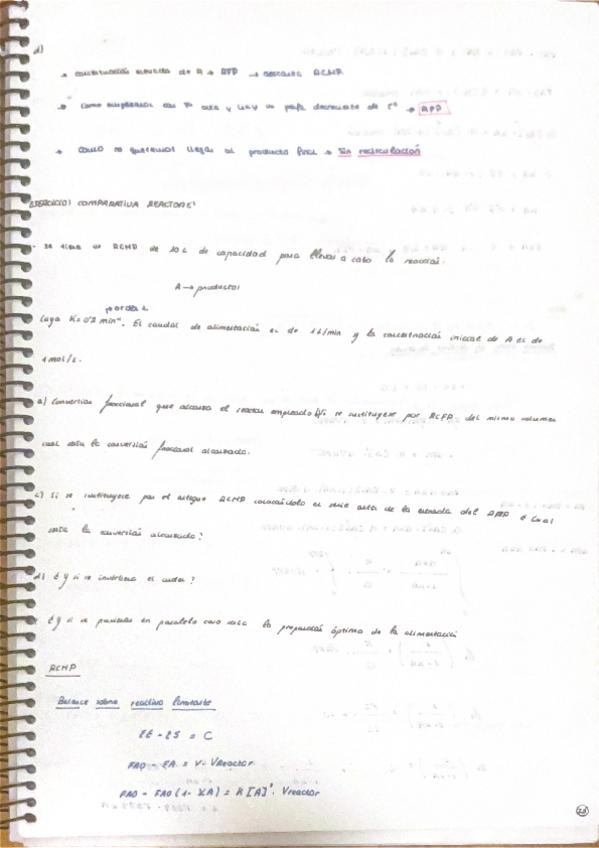 d)
→ concentración elevada de A → RFP → descarta RCMP
→ como empezamos con Tª alta y hay un perfil decreciente de Tª → RFP
→ Como no queremos llegar al producto final → Sin recirculación
EJERCICIO: COMPARATIVA REACTORES
- Se tiene un RCMP de 10 L de capacidad para llevar a cabo la reacción:
A → productos
orden 1
Cuya K=0'2 min⁻¹. El caudal de alimentación es de 1 L/min y la concentración inicial de A es de
1 mol/L.
a) Conversión fraccional que alcanza el reactor empleado b) si se sustituyese por RCFP del mismo volumen
cual sería la conversión fraccional alcanzada.
c) Si se sustituyese por el antiguo RCMP colocándolo en serie antes de la entrada del RFP ¿Cual
sería la conversión alcanzada?
d) ¿Y si se invirtiera el orden?
¿Y si se pusieran en paralelo cuál sería la proporción óptima de la alimentación
RCMP
Balance sobre reactivo limitante
EE - ES = C
FAO - FA = V · Vreactor
FAO - FAO (1 - XA) = K [A]¹ · Vreactor